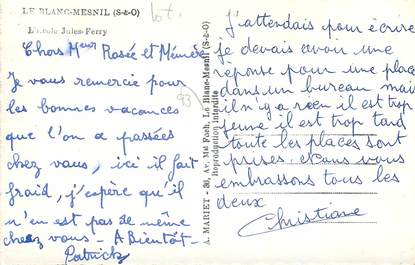 LE BLANC-MESNIL (S-&-O)
lot.
L'Ecole Jules-Ferry
Chers Meur Rosée et Mémère
Je vous remercie pour
les bonnes vacances
que l'on a passées
chez vous, ici il fait
froid, j'espère qu'il
n'en est pas de même
chez vous - A Bientôt -
Patrick
93
A. MARIET - 30, Av. Mal Foch, Le Blanc-Mesnil (S-&-O)
Reproduction interdite
J'attendais pour écrire
je devais avou une
réponse pour une place
dans un bureau mais
il n'y a rien il est trop
jeune il est trop tard
toute les places sont
prises. Dans vous
embrassons tous les
deux
Christiane